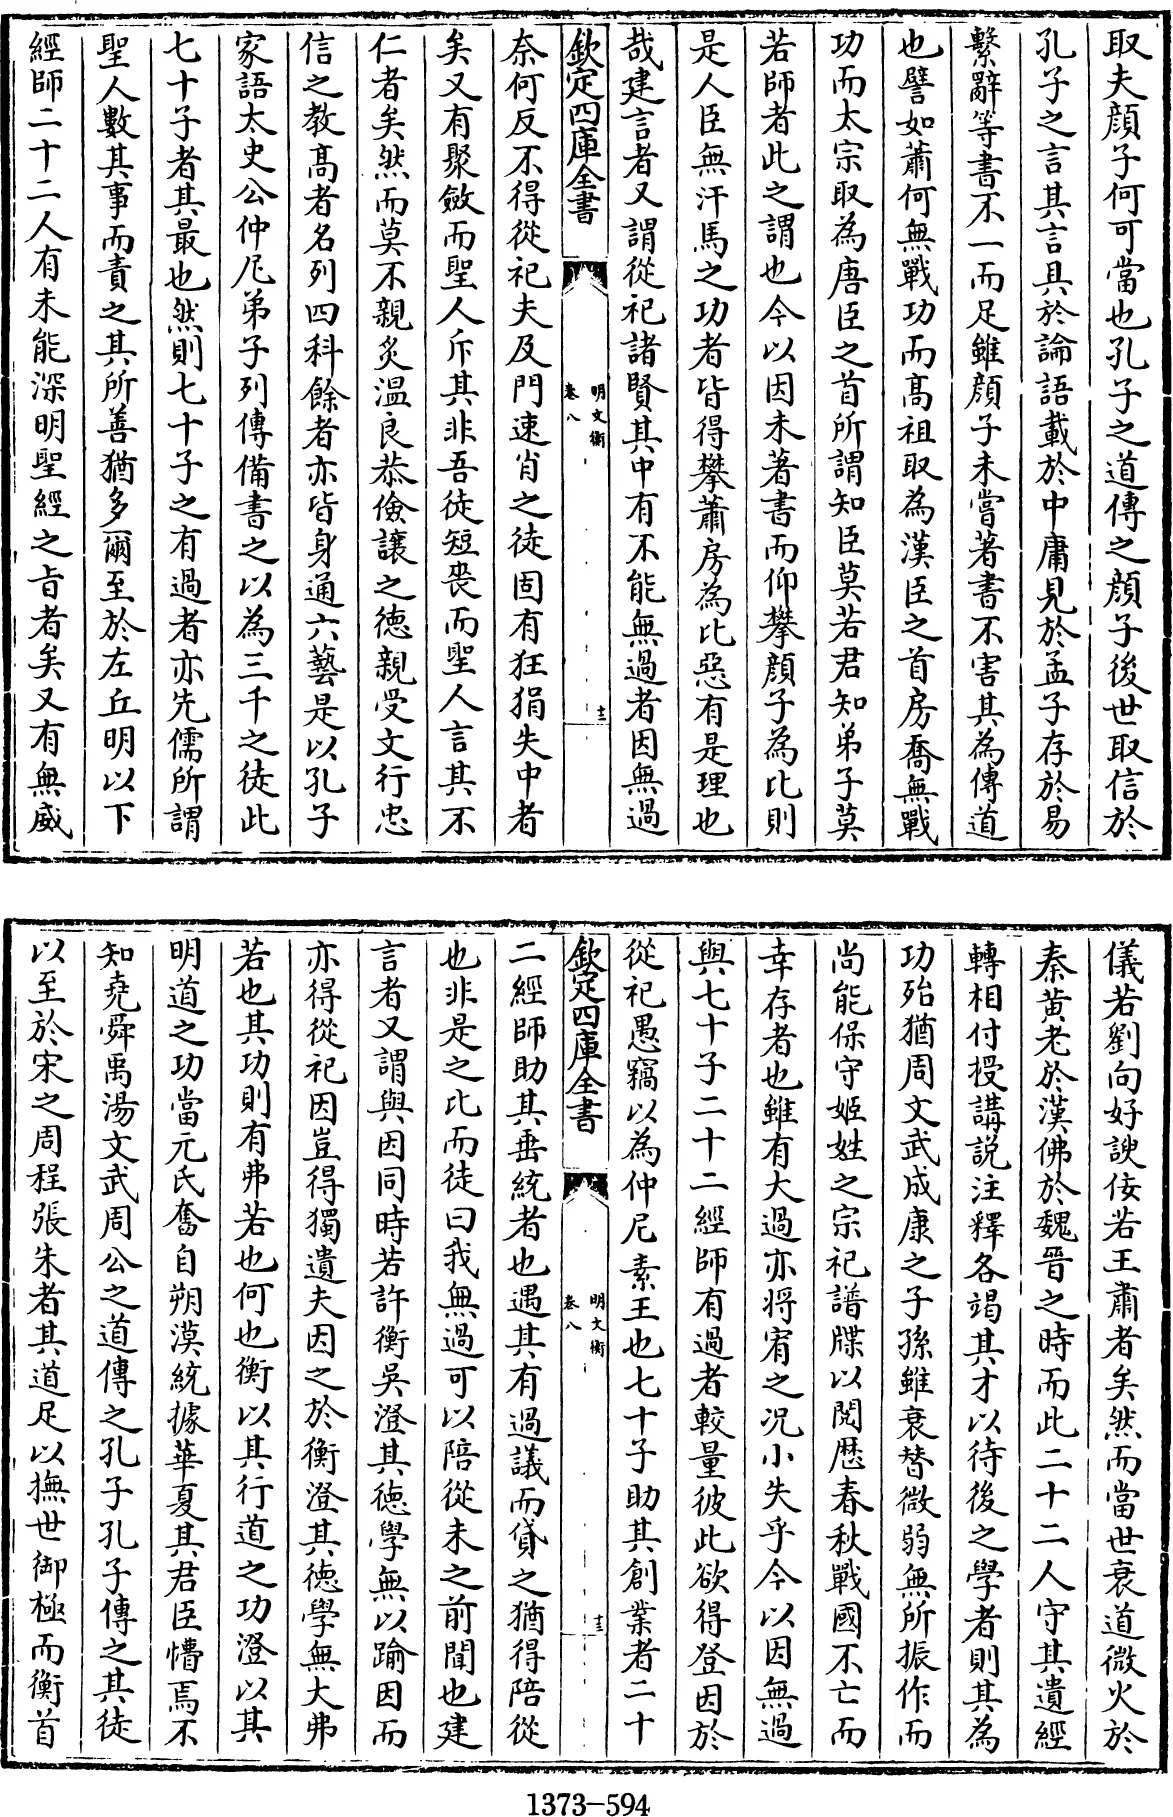 取夫顔子何可當也孔子之道傳之顔子後世取信於
孔子之言其言具於論語載於中庸見於孟子存於易
繫辭等書不一而足雖顔子未嘗著書不害其為傳道
也譬如蕭何無戰功而髙祖取為漢臣之首房喬無戰
功而太宗取為唐臣之首所謂知臣莫若君知弟子莫
若師者此之謂也今以因未著書而仰攀顔子為比則
是人臣無汗馬之功者皆得攀蕭房為比惡有是理也
哉建言者又謂從祀諸賢其中有不能無過者因無過
欽定四庫全書
明文衡
卷八
十二
奈何反不得從祀夫及門速肖之徒固有狂狷失中者
矣又有聚斂而聖人斥其非吾徒短喪而聖人言其不
仁者矣然而莫不親炙温良恭儉讓之徳親受文行忠
信之教髙者名列四科餘者亦皆身通六藝是以孔子
家語太史公仲尼弟子列傳備書之以為三千之徒此
七十子者其最也然則七十子之有過者亦先儒所謂
聖人數其事而責之其所善猶多爾至於左丘明以下
經師二十二人有未能深明聖經之旨者矣又有無威
儀若劉向好諛佞若王肅者矣然而當世衰道微火於
秦黄老於漢佛於魏晉之時而此二十二人守其遺經
轉相付授講説注釋各竭其才以待後之學者則其為
功殆猶周文武成康之子孫雖衰替微弱無所振作而
尚能保守姬姓之宗祀譜牒以閲歴春秋戰國不亡而
幸存者也雖有大過亦将宥之况小失乎今以因無過
與七十子二十二經師有過者較量彼此欲得登因於
從祀愚竊以為仲尼素王也七十子助其創業者二十
欽定四庫全書
明文衡
卷八
十三
二經師助其垂統者也遇其有過議而貸之猶得陪從
也非是之比而徒曰我無過可以陪從未之前聞也建
言者又謂與因同時若許衡吳澄其徳學無以踰因而
亦得從祀因豈得獨遺夫因之於衡澄其徳學無大弗
若也其功則有弗若也何也衡以其行道之功澄以其
明道之功當元氏奮自朔漠統據華夏其君臣懵焉不
知堯舜禹湯文武周公之道傳之孔子孔子傳之其徒
以至於宋之周程張朱者其道足以撫世御極而衡首
1373-594